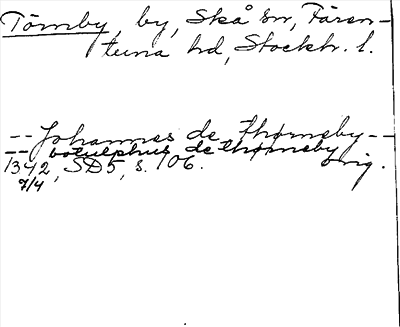 Törnby, by, Skå sn, Fären-
tuna hd, Stockh. l.
-- Johannes de thørneby --
-- botulphus de thørneby
1342, SD5, s. 106. orig.
9/4